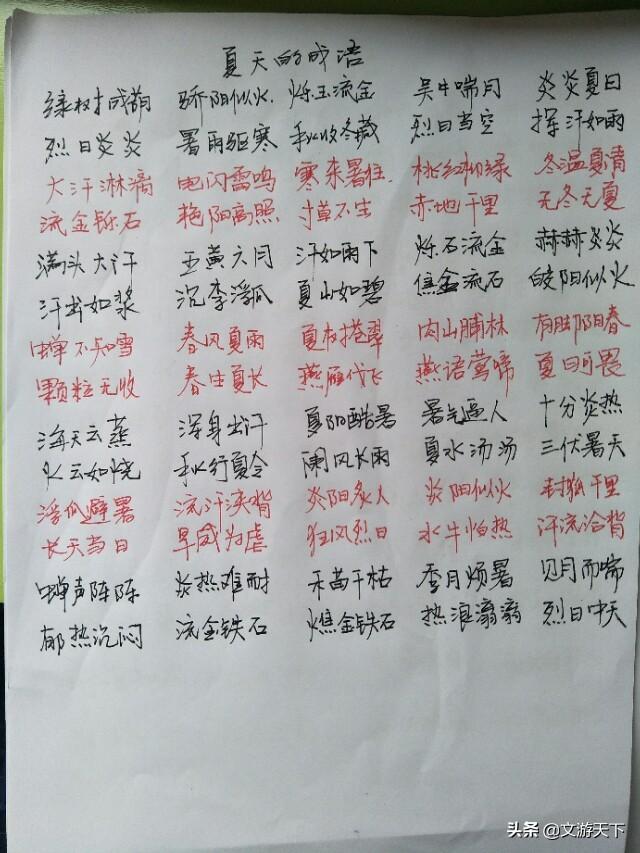 夏天的成语
绿树成荫 骄阳似火. 烁玉流金 吴牛喘月 炎炎夏日
烈日炎炎 暑雨驱寒 秋收冬藏 烈日当空 挥汗如雨
大汗淋漓 电闪雷鸣 寒来暑往. 桃红柳绿 冬温夏凊
流金铄石 艳阳高照 寸草不生 赤地千里 无冬无夏
满头大汗 五黄六月 汗如雨下 烁石流金 赫赫炎炎
汗出如浆 沉李浮瓜 夏山如碧 焦金流石 皎阳似火
蝉不知雪 春风夏雨 夏树挹翠 肉山脯林 有脚阳春
颗粒无收 春生夏长 燕雁代飞 燕语莺啼 夏日可畏
海天云蒸 浑身出汗 夏阳酷暑 暑气逼人 十分炎热
火云如烧 秋行夏令 阑风长雨 夏水汤汤 三伏暑天
浮瓜避暑 流汗浃背 炎阳炙人 炎阳似火 封狐千里
长天当日 旱威为虐 狂风烈日 水牛怕热 汗流洽背
蝉声阵阵 炎热难耐 禾苗干枯 季月烦暑 见月而喘
郁热沉闷 流金铁石 燋金铁石 热浪滚滚 烈日中天
头条 @文游天下